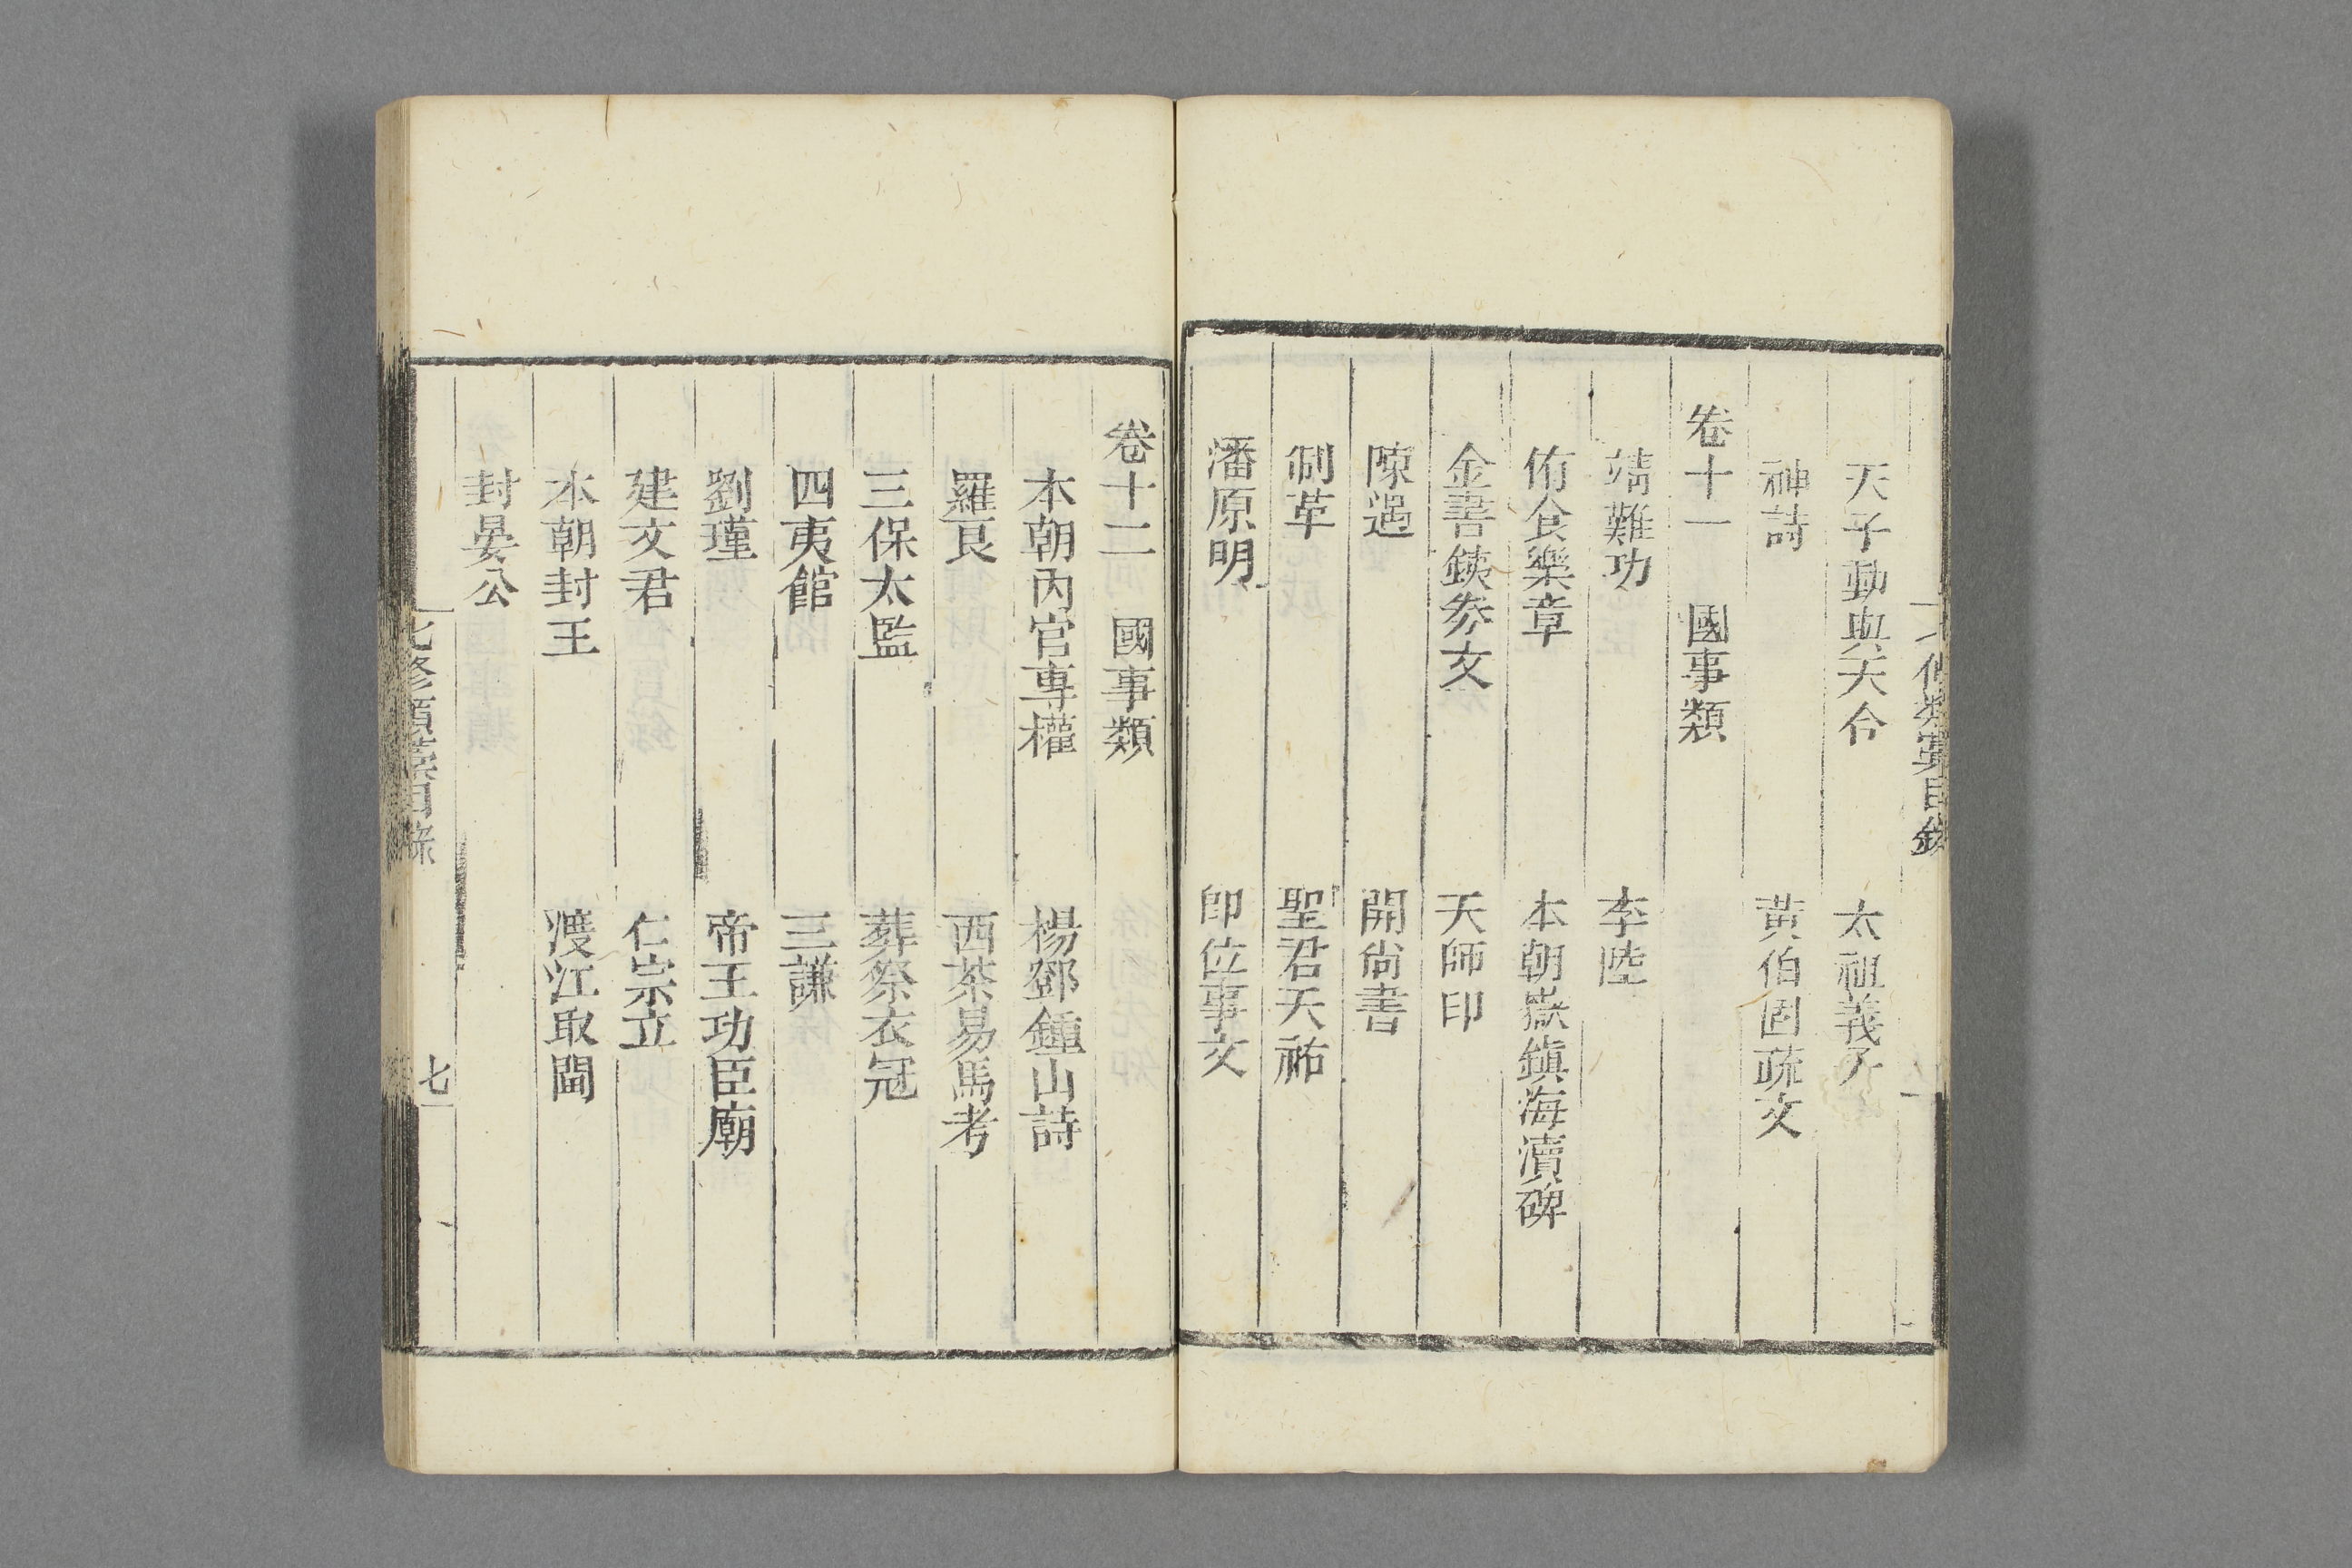 天子動與天合　太祖義子
神詩　黃伯固疏文
卷十一　國事類
靖難功　李陸
侑食樂章　本朝嶽鎮海瀆碑
金書鉄券文　天師印
陳遇　開尚書
制革　聖君天祐
潘原明　即位事文
卷十二　國事類
本朝內官專權　楊鄧鍾山詩
羅良　西茶易馬考
三保太監　葬祭衣冠
四夷館　三謙
劉瑾　帝王功臣廟
建文君　仁宗立
本朝封王　渡江取閩
封晏公
七修類藁目錄　七